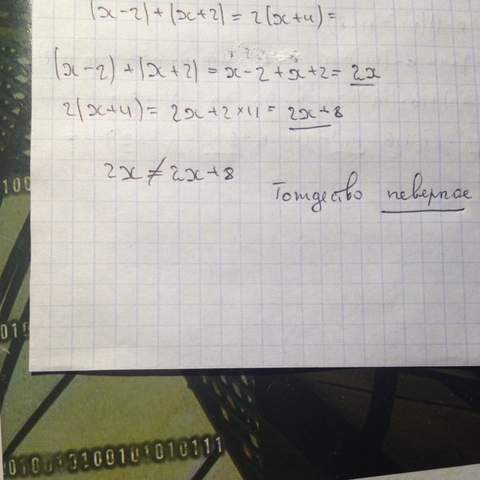 (x-2)+(x+2)=2(x+4)=
(x-2)+(x+2)=x-2+x+2=2x
2(x+4)=2x+2×4=2x+8
2x≠2x+8
Тождество неверное
100
010
010100101010111